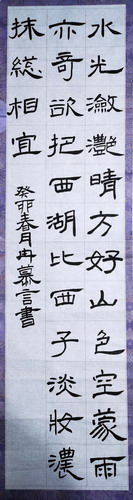 水光瀲灔晴方好山色空蒙雨
亦奇欲把西湖比西子淡妝濃
抹総相宜
癸卯春月冉慕言書